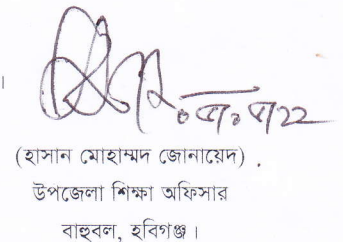 (হাসান মোহাম্মদ জোনায়েদ) .
উপজেলা শিক্ষা অফিসার
বাহুবল, হবিগঞ্জ।